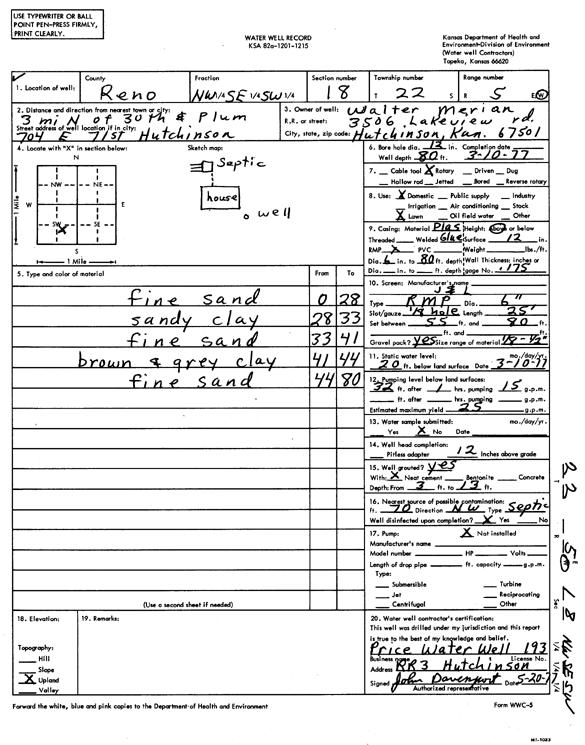 USE TYPEWRITER OR BALL
POINT PEN-PRESS FIRMLY,
PRINT CLEARLY.
WATER WELL RECORD
KSA 82a-1201-1215
Kansas Department of Health and
Environment-Division of Environment
(Water well Contractors)
Topeka, Kansas 66620
1. Location of well: County Reno Fraction NW 1/4 SE 1/4 SW 1/4 Section number 18 Township number T 22 S Range number R 5 E/W
2. Distance and direction from nearest town or city:
3 mi N of 30th & Plum
Street address of well location if in city:
704 E 71st Hutchinson
3. Owner of well: Walter Merian
R.R. or street: 3506 Lakeview rd.
City, state, zip code: Hutchinson, Kan. 67501
4. Locate with "X" in section below:
N
NW NE
W E
SW SE
S
1 Mile
1 Mile
X
Sketch map:
Septic
house
well
5. Type and color of material From To
fine sand 0 28
sandy clay 28 33
fine sand 33 41
brown & grey clay 41 44
fine sand 44 80
(Use a second sheet if needed)
6. Bore hole dia. 13 in. Completion date
Well depth 80 ft. 3-10-77
7. Cable tool X Rotary Driven Dug
Hollow rod Jetted Bored Reverse rotary
8. Use: X Domestic Public supply Industry
Irrigation Air conditioning Stock
X Lawn Oil field water Other
9. Casing: Material Plas Height: Above or below
Threaded Welded Glue Surface 12 in.
RMP X PVC Weight lbs./ft.
Dia. 6 in. to 80 ft. depth Wall Thickness: inches or
Dia. in. to ft. depth gage No. .175
10. Screen: Manufacturer's name
J & L
Type RMP Dia. 6"
Slot/gauze 1/8 hole Length 25'
Set between 55 ft. and 80 ft.
ft. and ft.
Gravel pack? yes Size range of material 1/8-1/2"
11. Static water level: mo./day/yr.
20 ft. below land surface Date 3-10-77
12. Pumping level below land surfaces:
32 ft. after 1 hrs. pumping 15 g.p.m.
ft. after hrs. pumping g.p.m.
Estimated maximum yield 25 g.p.m.
13. Water sample submitted: mo./day/yr.
Yes X No Date
14. Well head completion:
Pitless adapter 12 Inches above grade
15. Well grouted? yes
With: X Neat cement Bentonite Concrete
Depth: From 3 ft. to 13 ft.
16. Nearest source of possible contamination:
ft. 70 Direction NW Type Septic
Well disinfected upon completion? X Yes No
17. Pump: X Not installed
Manufacturer's name
Model number HP Volts
Length of drop pipe ft. capacity g.p.m.
Type:
Submersible Turbine
Jet Reciprocating
Centrifugal Other
18. Elevation:
Topography:
Hill
Slope
X Upland
Valley
19. Remarks:
20. Water well contractor's certification:
This well was drilled under my jurisdiction and this report
is true to the best of my knowledge and belief.
Price Water Well 193
Business name License No.
Address RR3 Hutchinson
Signed John Davenport Date 5-20-77
Authorized representative
Forward the white, blue and pink copies to the Department of Health and Environment
Form WWC-5
T 22 - R 5 E W Sec 18 NW 1/4 SE 1/4 SW 1/4